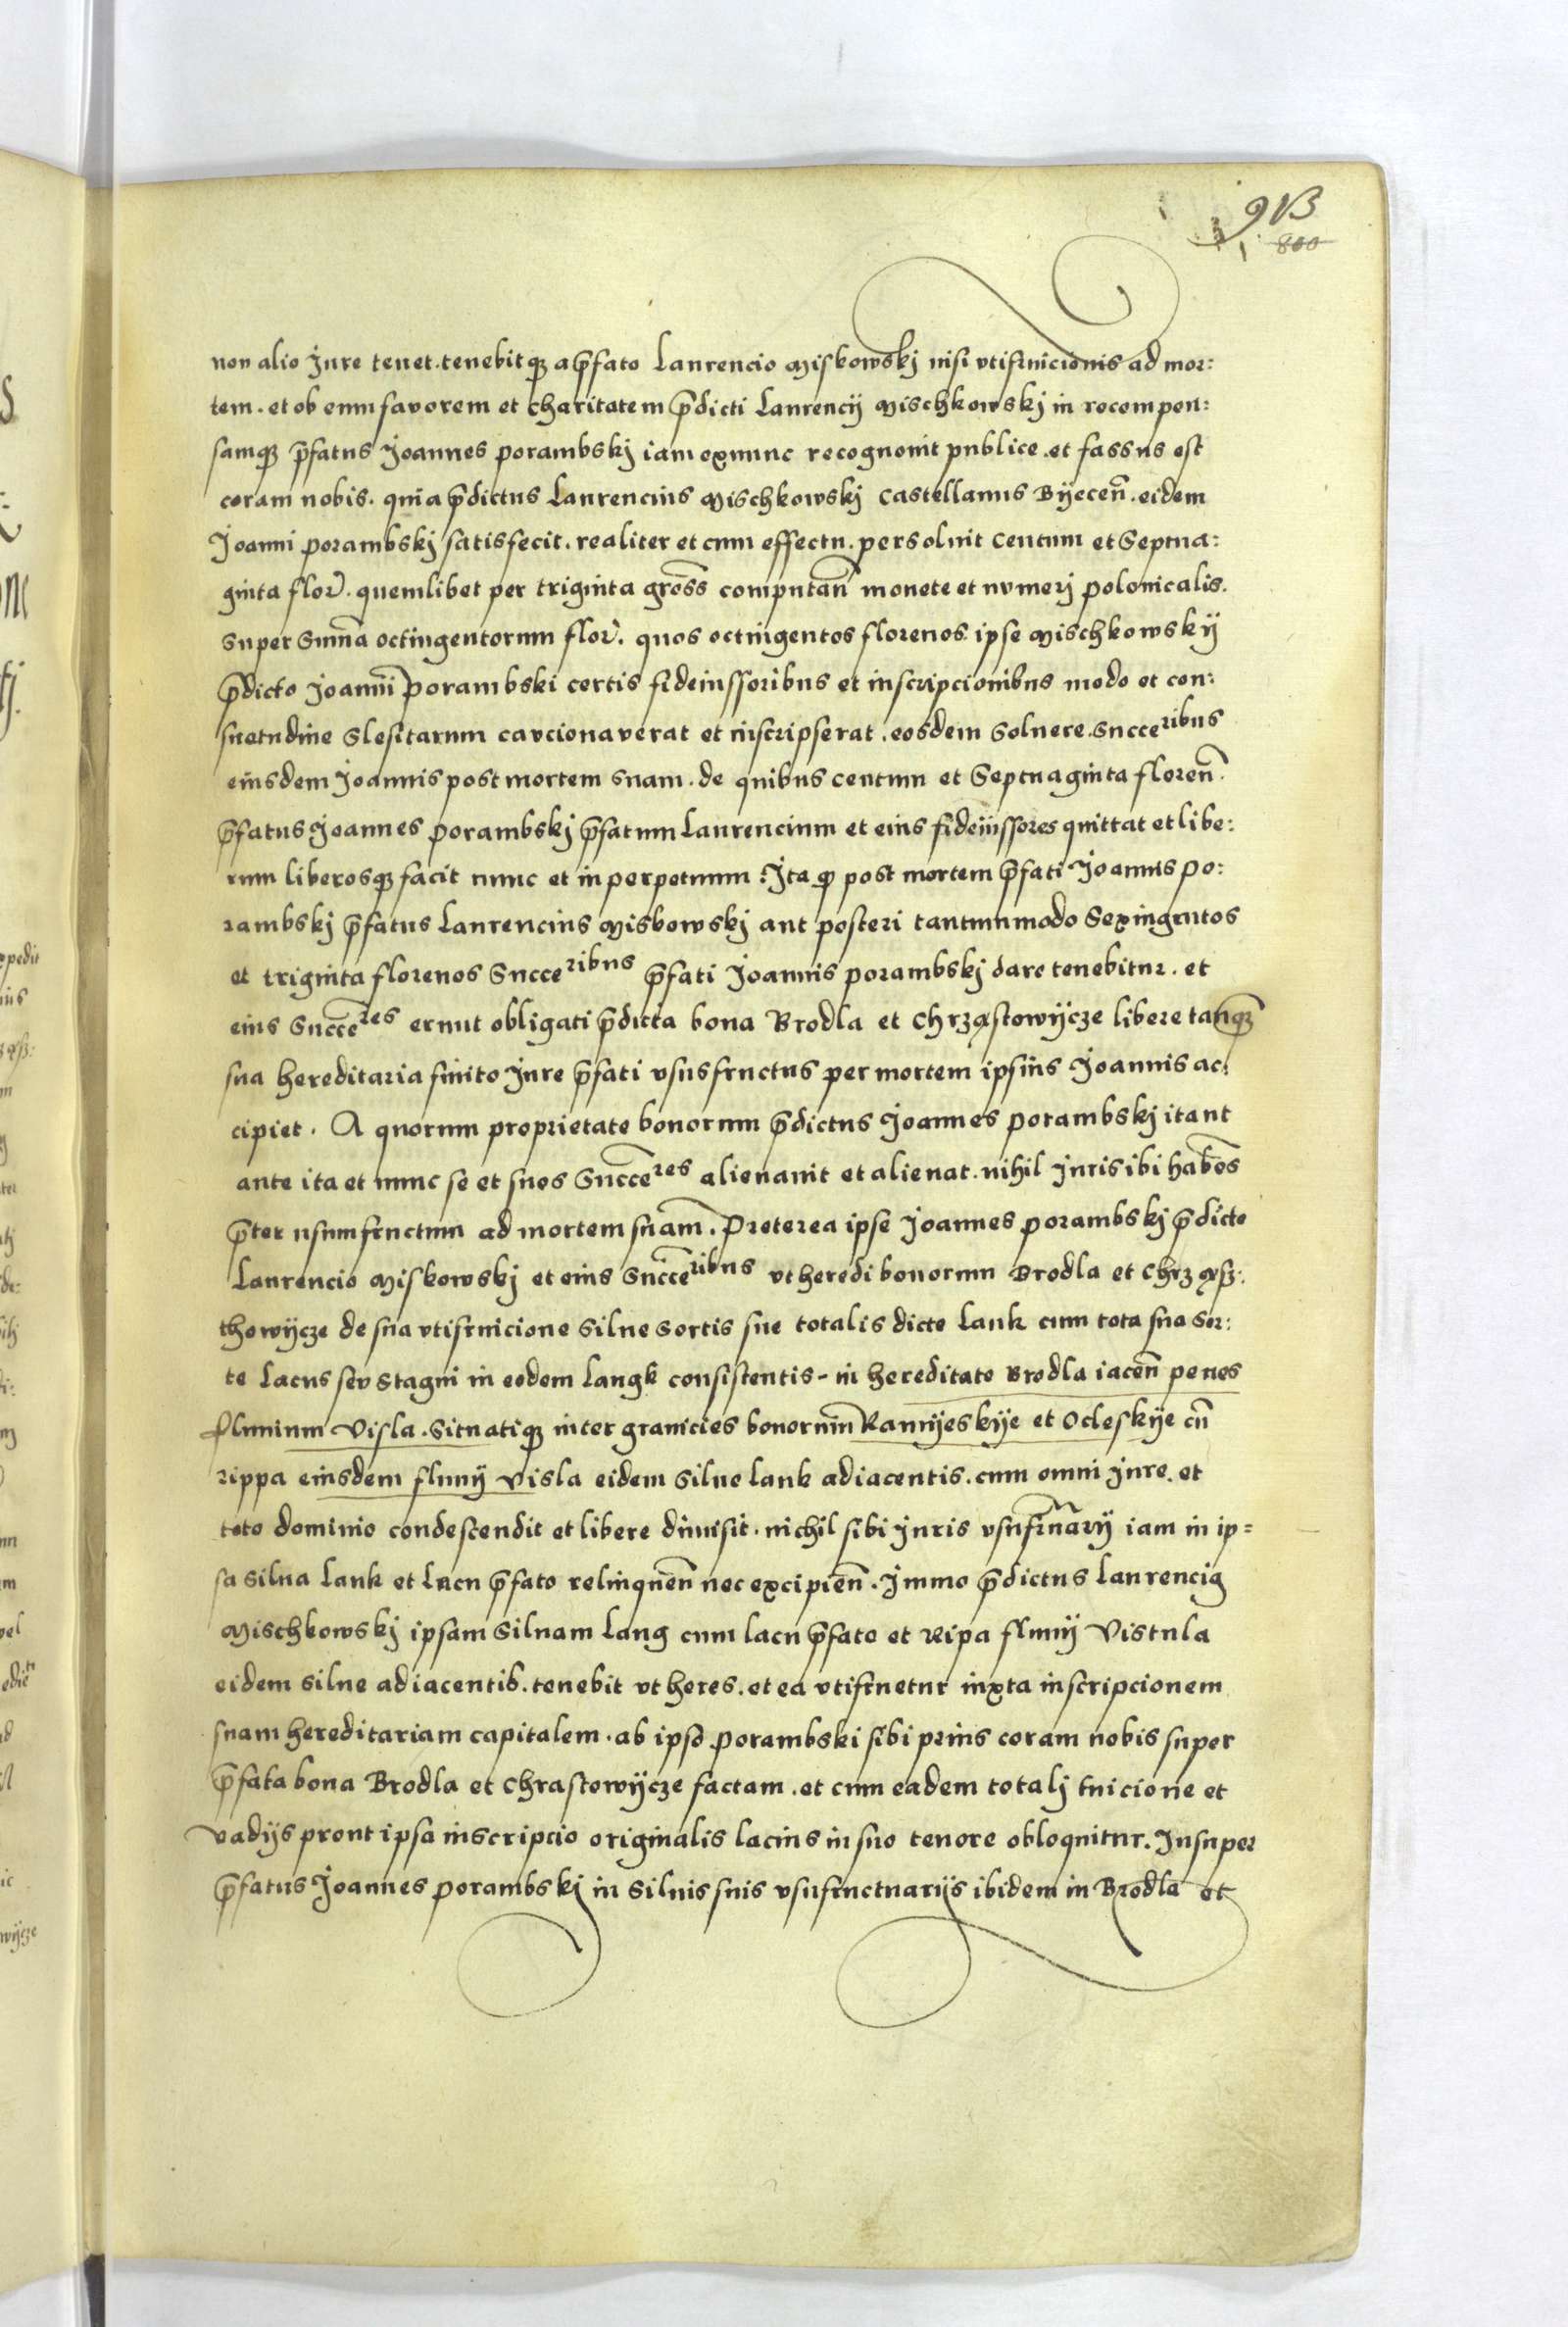 913
800
non alio Jure tenet. tenebitqȝ a p̄fato Laurencio Miskowskj nisi vtifruicionis ad mor:
tem. et ob eum favorem et charitatem p̄dicti Laurencij Mischkowskj in recompen:
samqȝ p̄fatus Joannes Porambskj iam exnunc recognouit publice. et fassus est
coram nobis. quia p̄dictus Laurencius Mischkowskj Castellanus Byecen̄. eidem
Joanni Porambskj satisfecit. realiter et cum effectu. persoluit Centum et Septua:
ginta flor̄. quemlibet per triginta gross̄ computan̄ monete et numerj polonicalis.
super Sum̄a octingentorum flor̄. quos octingentos florenos ipse Mischkowskij
p̄dicto Joanni Porambski certis fideiussoribus et inscripcionibus modo et con:
suetudine Slesitarum cavcionaverat et inscripserat. eosdem soluere. Succeribus
eiusdem Joannis post mortem suam. de quibus centum et Septuaginta floren̄.
p̄fatus Joannes Porambskj p̄fatum Laurencium et eius fideiussores quittat et libe:
rum liberosqȝ facit nunc et in perpetuum. Ita ꝙ post mortem p̄fati Joannis Po:
rambskj p̄fatus Laurencius Miskowskj aut posteri tantummodo Sexingentos
et triginta florenos Succeribus p̄fati Joannis Porambskj dare tenebitur. et
eius Succ̄eres erunt obligati p̄dicta bona Brodla et Chrząstowycze libere tanqȝ
sua hereditaria finito Jure p̄fati vsusfructus per mortem ipsius Joannis ac:
cipiet. A quorum proprietate bonorum p̄dictus Joannes Porambskj ita ut
ante ita et nunc se et suos Succ̄eres alienauit et alienat. nihil Juris ibi habēs
p̄ter usumfructum ad mortem suam. Preterea ipse Joannes Porambskj p̄dicto
Laurencio Miskowskj et eius Succ̄eribus vt heredi bonorum Brodla et Chrząsz:
thowycze de sua vtifruicione Silue Sortis sue totalis dicte Lank cum tota sua Sor:
te Lacus sev Stagni in eodem Langk consistentis - in hereditate Brodla iacen̄ penes
fluuium Visla. Situatiqȝ inter granicies bonorum Ramyeskye et Ocleskye cū
rippa eiusdem fluuij Visla eidem Silue Lank adiacentis. cum omni Jure. et
toto dominio condescendit et libere dimisit. nichil sibi Juris vsufruc̄tuarij iam in ip=
sa Silua Lank et Lacu p̄fato relinquen̄ nec excipien̄. Jmmo p̄dictus Laurenciꝯ
Mischkowskj ipsam Siluam Lang cum lacu p̄fato et Ripa fluuij Vistula
eidem Silue adiacentis. tenebit vt heres. et ea vtifruetur iuxta inscripcionem
suam hereditariam capitalem. ab ipso Porambski sibi prius coram nobis super
p̄fata bona Brodla et Chrastowycze factam. et cum eadem totalj tuicione et
vadijs prout ipsa inscripcio originalis lacius in suo tenore obloquitur. Insuper
p̄fatus Joannes Porambskj in Siluis suis vsufructuarijs ibidem in Brodla et